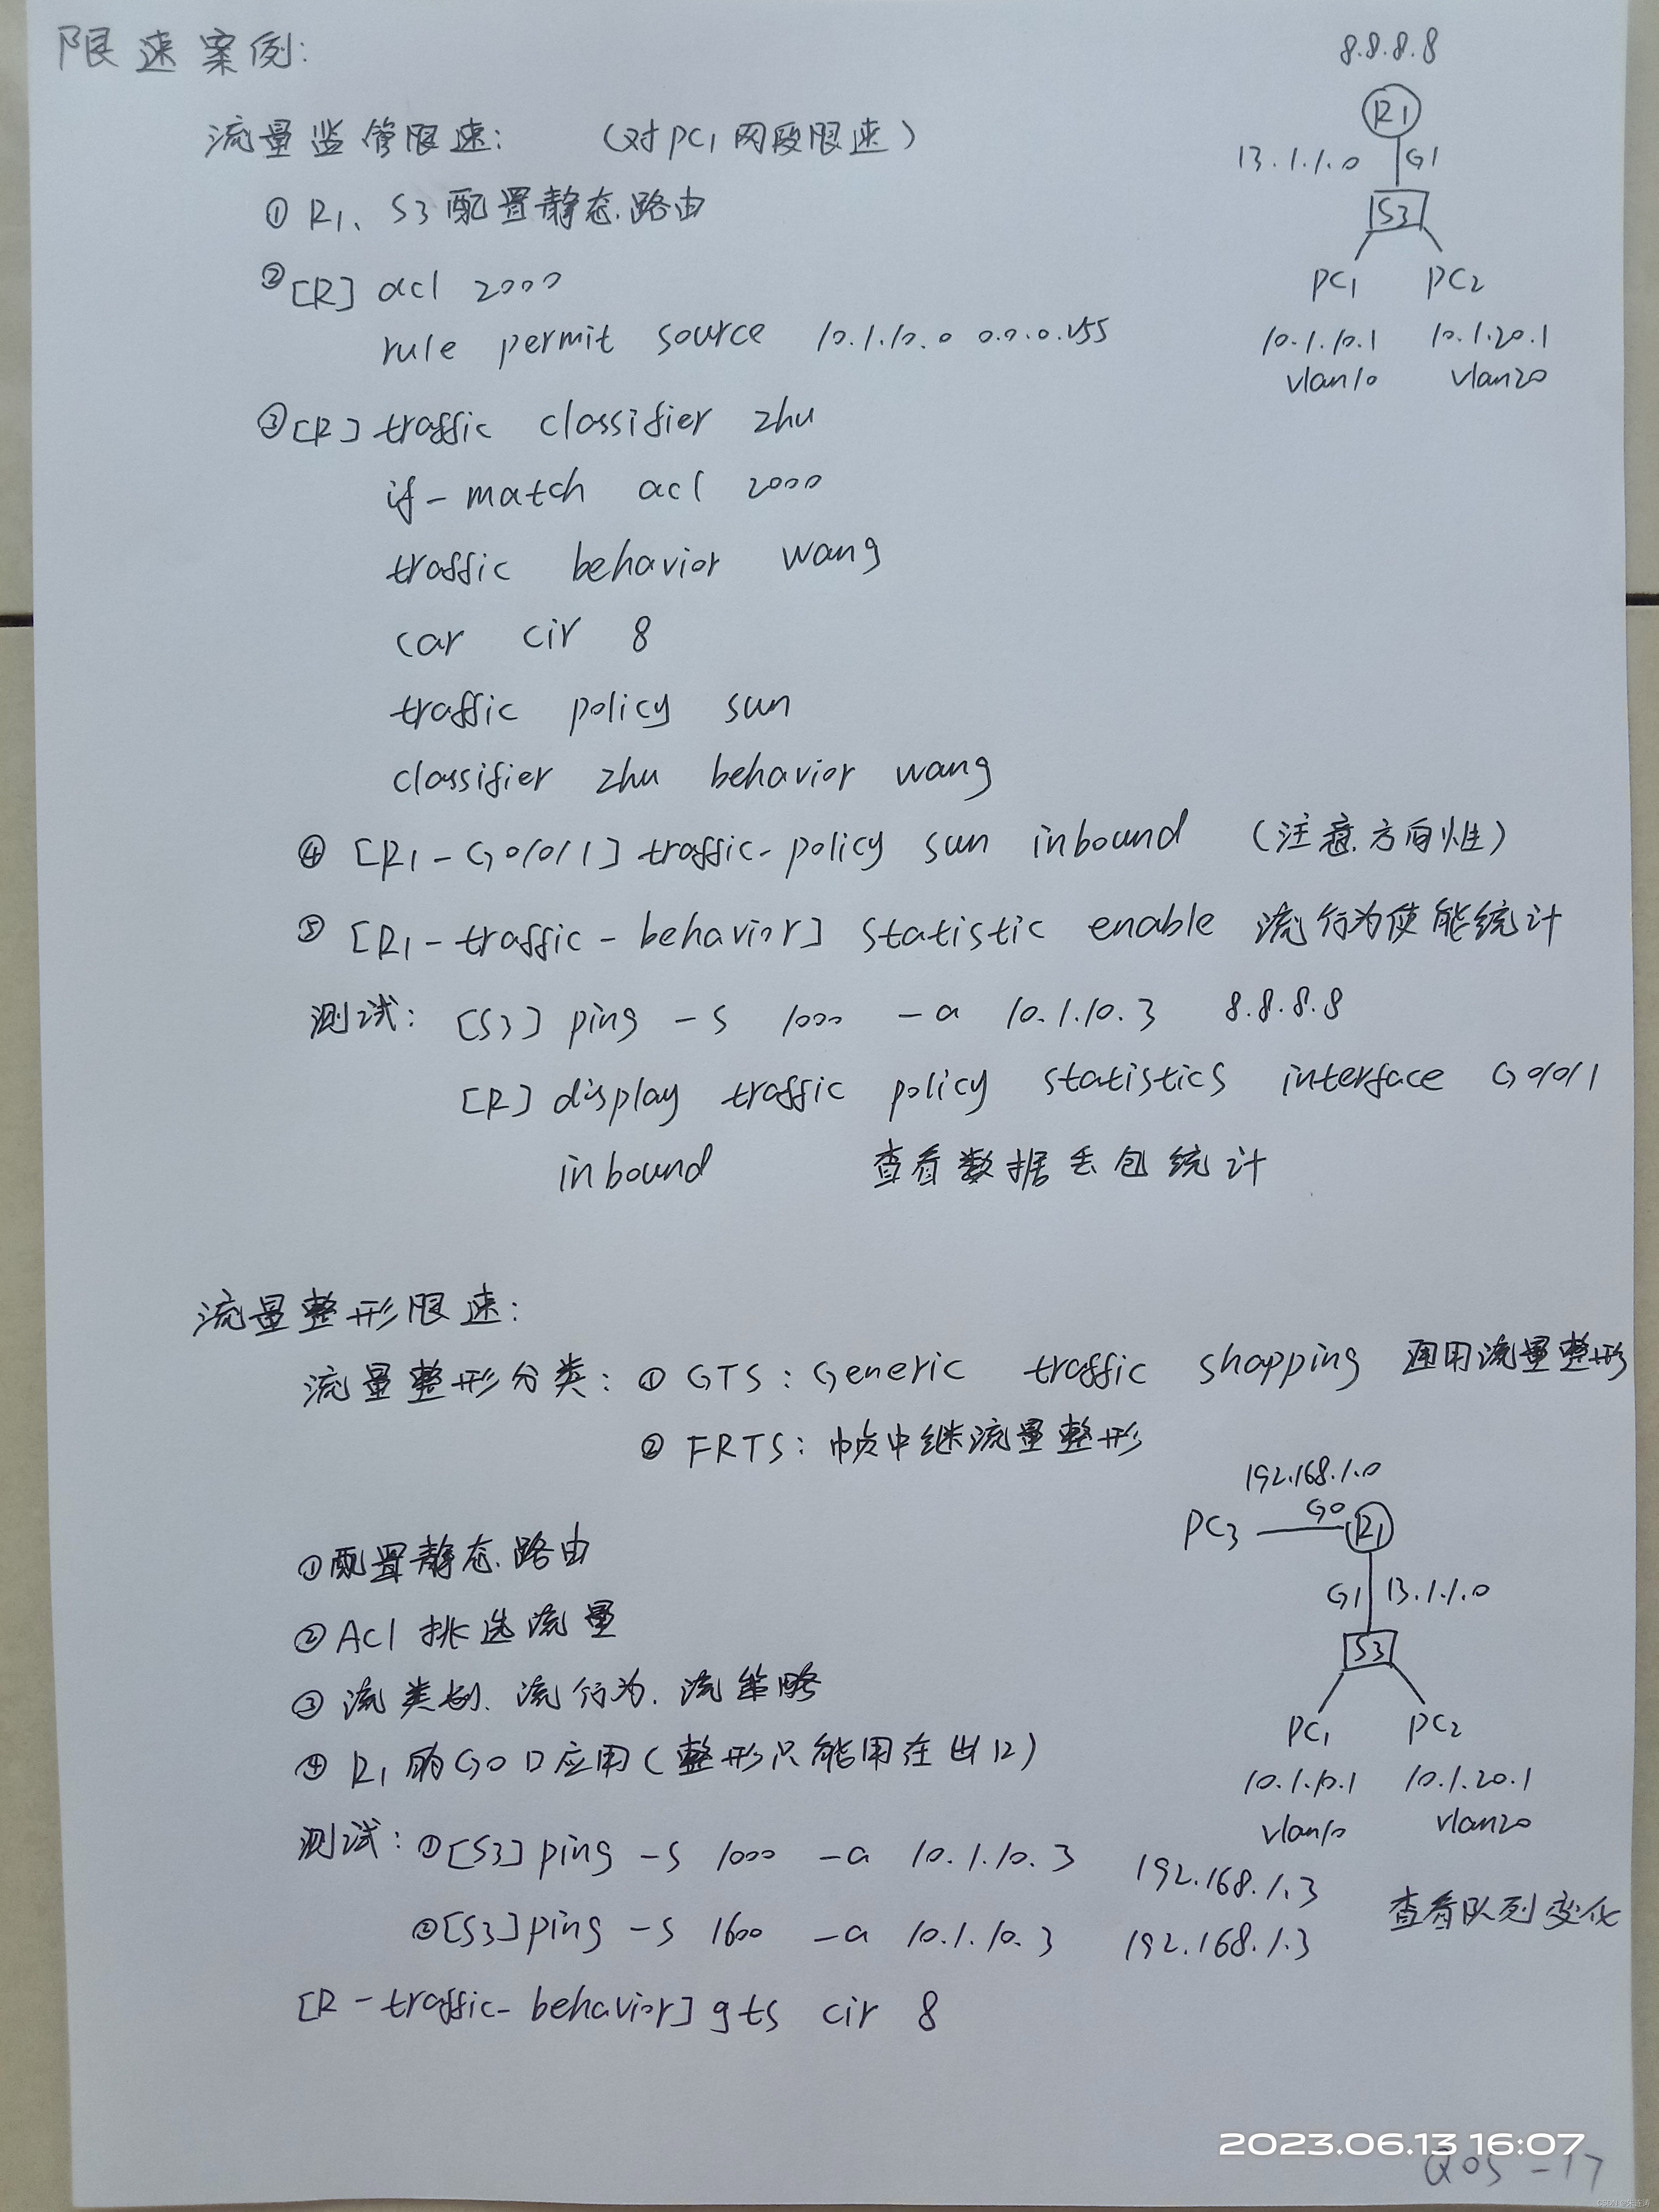 限速案例:
8.8.8.8
R1
流量监管限速: (对PC1网段限速)
13.1.1.0 G1
S3
① R1、S3配置静态路由
PC1 PC2
② [R] acl 2000
rule permit source 10.1.10.0 0.0.0.255
10.1.10.1 10.1.20.1
vlan10 vlan20
③ [R] traffic classifier zhu
if-match acl 2000
traffic behavior wang
car cir 8
traffic policy sun
classifier zhu behavior wang
④ [R1-G0/0/1] traffic-policy sun inbound (注意方向性)
⑤ [R1-traffic-behavior] statistic enable 流行为使能统计
测试: [S3] ping -s 1000 -a 10.1.10.3 8.8.8.8
[R] display traffic policy statistics interface G0/0/1
inbound 查看数据丢包统计
流量整形限速:
流量整形分类: ① GTS: Generic traffic shopping 通用流量整形
② FRTS: 帧中继流量整形
192.168.1.0
PC3 G0 R1
①配置静态路由
G1 13.1.1.0
②Acl 挑选流量
S3
③ 流类别、流行为、流策略
PC1 PC2
④ R1的G0口应用(整形只能用在出口)
10.1.10.1 10.1.20.1
vlan10 vlan20
测试: ①[S3] ping -s 1000 -a 10.1.10.3 192.168.1.3
②[S3] ping -s 1600 -a 10.1.10.3 192.168.1.3 查看队列变化
[R-traffic-behavior] gts cir 8
2023.06.13 16:07
QOS-17